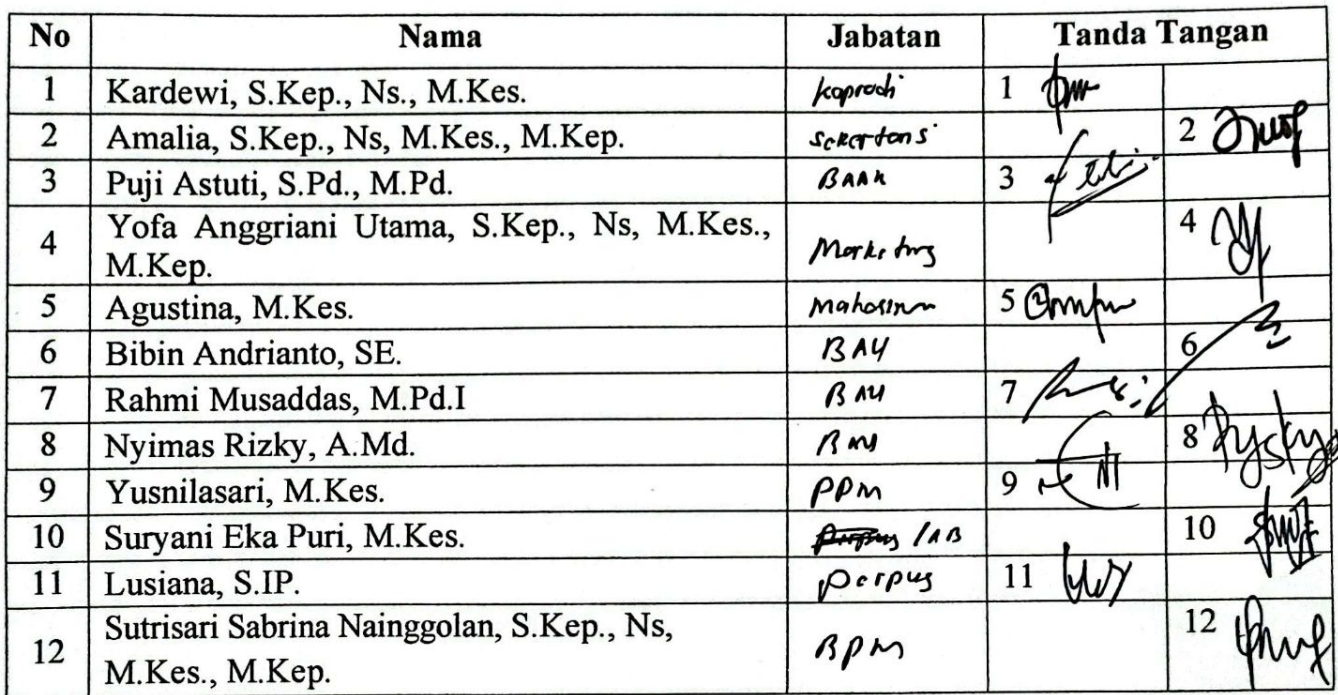 No Nama Jabatan Tanda Tangan
1 Kardewi, S.Kep., Ns., M.Kes. Kaprodi 1
2 Amalia, S.Kep., Ns, M.Kes., M.Kep. 2
3 Puji Astuti, S.Pd., M.Pd. BAAK 3
4 Yofa Anggriani Utama, S.Kep., Ns, M.Kes.,
M.Kep. Marketing 4
5 Agustina, M.Kes. 5
6 Bibin Andrianto, SE. BAU 6
7 Rahmi Musaddas, M.Pd.I BAU 7
8 Nyimas Rizky, A.Md. 8
9 Yusnilasari, M.Kes. PPM 9
10 Suryani Eka Puri, M.Kes. 10
11 Lusiana, S.IP. perpus 11
12 Sutrisari Sabrina Nainggolan, S.Kep., Ns,
M.Kes., M.Kep. BPM 12